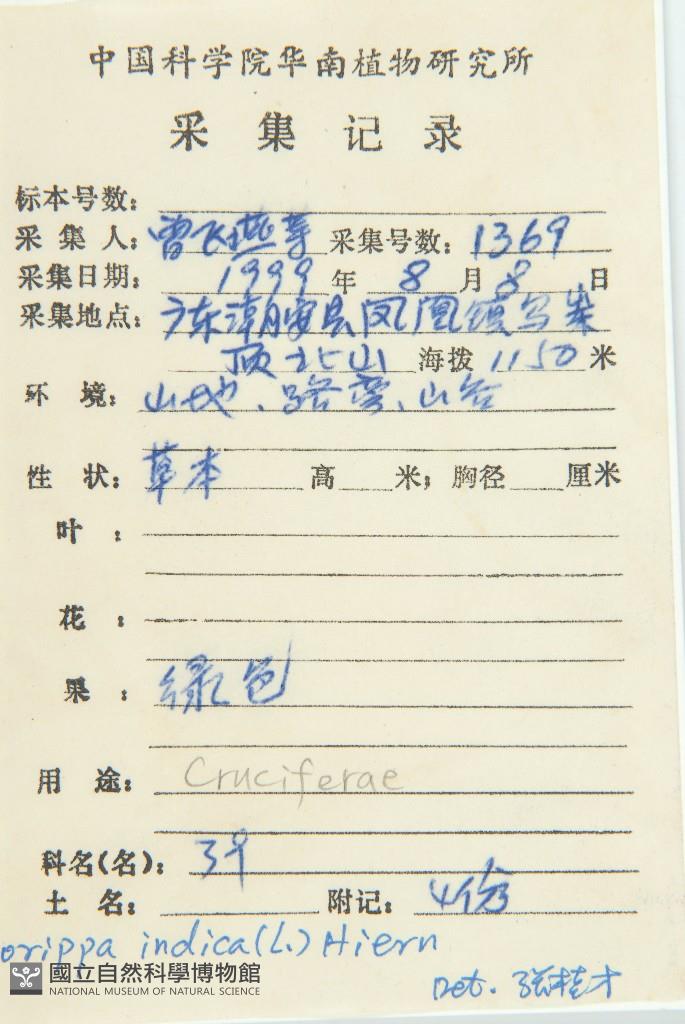 中国科学院华南植物研究所
采集记录
标本号数：
采集人：曾飞燕等 采集号数：1369
采集日期：1999年8月8日
采集地点：广东潮安县凤凰镇乌岽
顶北山 海拨1150米
环境：山地、路旁、山谷
性状：草本 高 米；胸径 厘米
叶：
花：
果：绿色
用途：Cruciferae
科名(名)：
土名： 附记：4份
orippa indica (L.) Hiern
國立自然科學博物館
NATIONAL MUSEUM OF NATURAL SCIENCE
Det. 张桂才